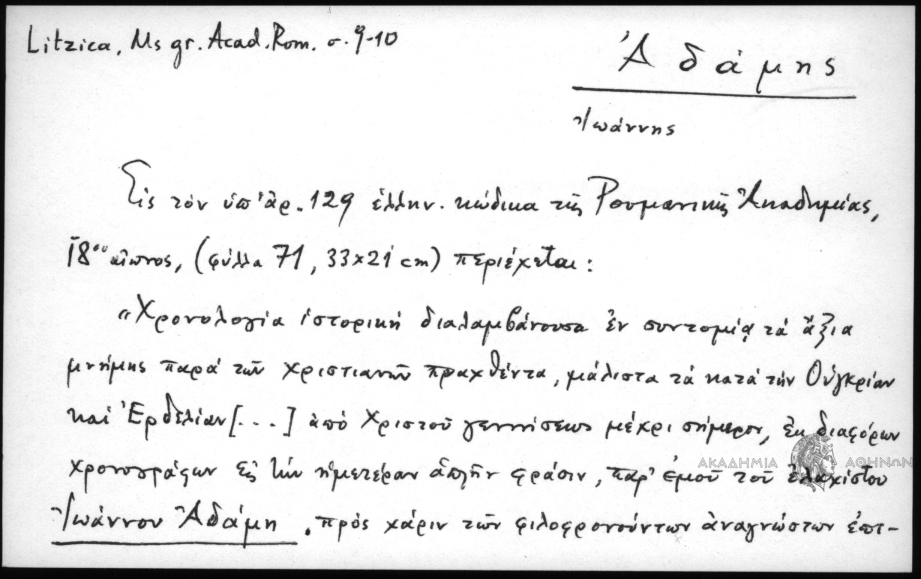 Litzica, Ms gr. Acad. Rom. σ. 9-10
Ἀδάμης
Ἰωάννης
Εἰς τὸν ὑπ' ἀρ. 129 ἑλλην. κώδικα τῆς Ρουμανικῆς Ἀκαδημίας,
18ου αἰῶνος, (φύλλα 71, 33×21 cm) περιέχεται:
"Χρονολογία ἱστορικὴ διαλαμβάνουσα ἐν συντομίᾳ τὰ ἄξια
μνήμης παρὰ τῶν χριστιανῶν πραχθέντα, μάλιστα τὰ κατὰ τὴν Οὑγκρίαν
καὶ Ἐρδελίαν [...] ἀπὸ Χριστοῦ γεννήσεως μέχρι σήμερον, ἐκ διαφόρων
χρονογράφων εἰς τὴν ἡμετέραν ἁπλῆν φράσιν, παρ' ἐμοῦ τοῦ ἐλαχίστου
Ἰωάννου Ἀδάμη. πρὸς χάριν τῶν φιλοφρονούντων ἀναγνώστων ἐπι-
ΑΚΑΔΗΜΙΑ ΑΘΗΝΩΝ